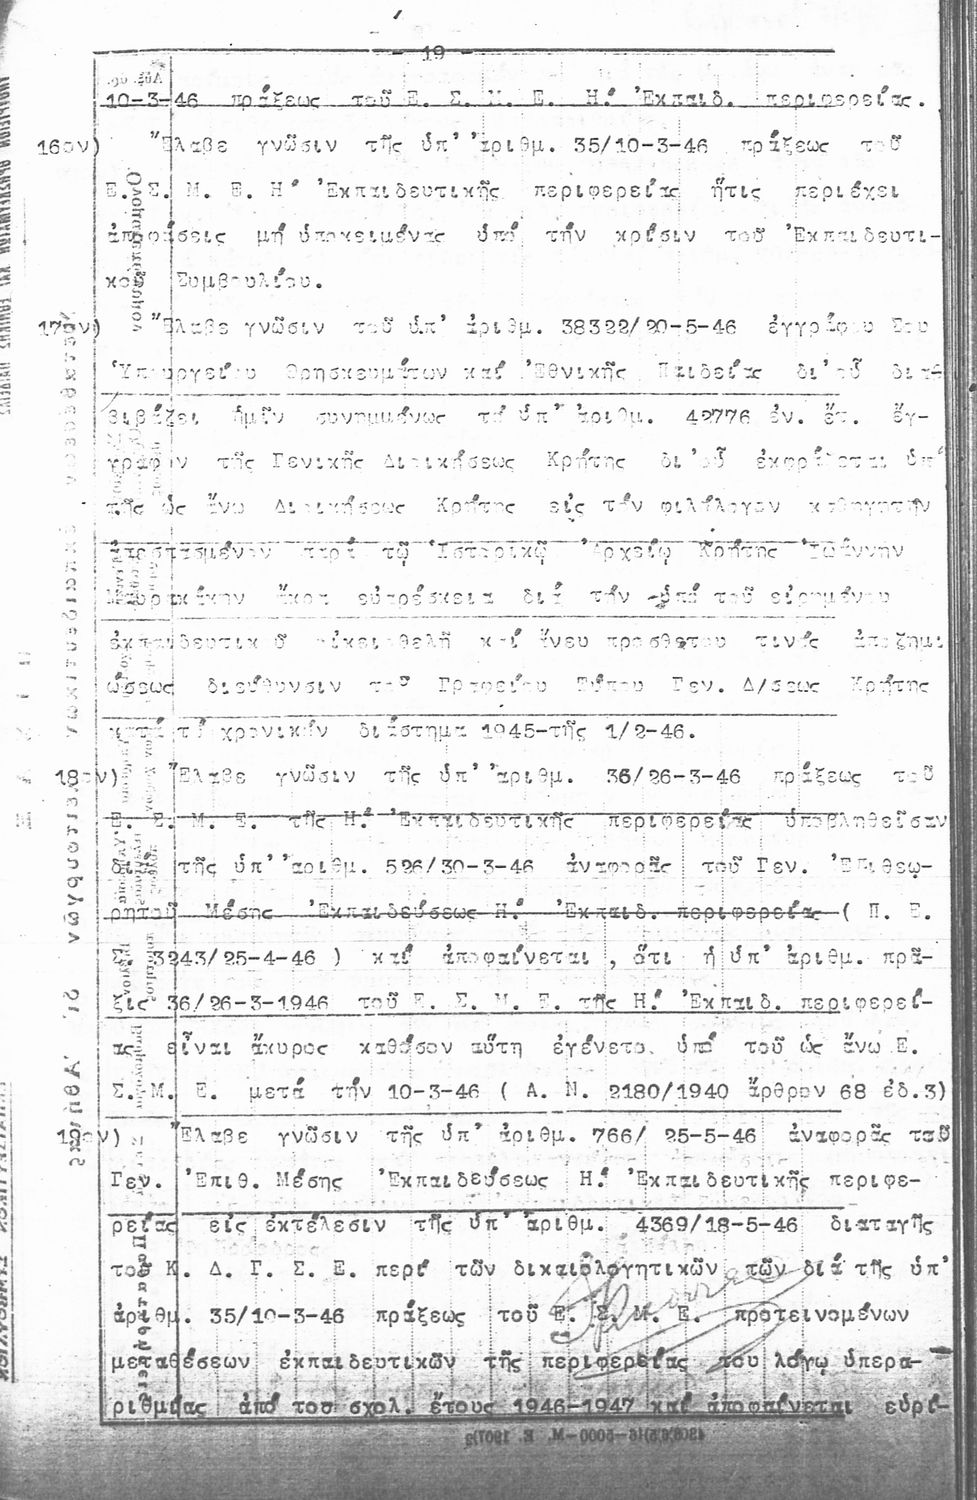 - 19 -
10-3-46 πράξεως τοῦ Ε. Σ. Μ. Ε. Η.' Ἐκπαιδ. περιφερείας.
16ον) Ἔλαβε γνῶσιν τῆς ὑπ' ἀριθμ. 35/10-3-46 πράξεως τοῦ
Ε. Σ. Μ. Ε. Η' Ἐκπαιδευτικῆς περιφερείας ἥτις περιέχει
ἀποφάσεις μή ὑποκειμένας ὑπό τήν κρίσιν τοῦ Ἐκπαιδευτι-
κοῦ Συμβουλίου.
17ον) Ἔλαβε γνῶσιν τοῦ ὑπ' ἀριθμ. 38322/20-5-46 ἐγγράφου Σου
Ὑπουργείου Θρησκευμάτων καί Ἐθνικῆς Παιδείας δι'οὗ δια-
βιβάζει ἡμῖν συνημμένως τό ὑπ' ἀριθμ. 42776 ἐν. ἔτ. ἔγ-
γραφον τῆς Γενικῆς Διοικήσεως Κρήτης δι'οὗ ἐκφράζεται ὑπό
τῆς ὡς ἄνω Διοικήσεως Κρήτης εἰς τόν φιλόλογον καθηγητήν
ἀπεσπασμένον παρά τῷ Ἱστορικῷ Ἀρχείῳ Κρήτης Ἰωάννην
Μαυρακάκην ἄκρα εὐαρέσκεια διά τήν ὑπό τοῦ εἰρημένου
ἐκπαιδευτικοῦ οἰκειοθελῆ καί ἄνευ προσθέτου τινός ἀποζημι
ώσεως διεύθυνσιν τοῦ Γραφείου Τύπου Γεν. Δ/σεως Κρήτης
κατά τό χρονικόν διάστημα 1945-τῆς 1/2-46.
18ον) Ἔλαβε γνῶσιν τῆς ὑπ' ἀριθμ. 36/26-3-46 πράξεως τοῦ
Ε. Σ. Μ. Ε. τῆς Η.' Ἐκπαιδευτικῆς περιφερείας ὑποβληθεῖσαν
διά τῆς ὑπ' ἀριθμ. 526/30-3-46 ἀναφορᾶς τοῦ Γεν. Ἐπιθεω-
ρητοῦ Μέσης Ἐκπαιδεύσεως Η.' Ἐκπαιδ. περιφερείας ( Π. Ε.
Σ. 3243/25-4-46 ) καί ἀποφαίνεται , ὅτι ἡ ὑπ' ἀριθμ. πρᾶ-
ξις 36/26-3-1946 τοῦ Ε. Σ. Μ. Ε. τῆς Η.' Ἐκπαιδ. περιφερεί-
ας εἶναι ἄκυρος καθόσον αὕτη ἐγένετο ὑπό τοῦ ὡς ἄνω Ε.
Σ. Μ. Ε. μετά τήν 10-3-46 ( Α. Ν. 2180/1940 ἄρθρον 68 ἐδ.3)
19ον) Ἔλαβε γνῶσιν τῆς ὑπ' ἀριθμ. 766/ 25-5-46 ἀναφορᾶς τοῦ
Γεν. Ἐπιθ. Μέσης Ἐκπαιδεύσεως Η.' Ἐκπαιδευτικῆς περιφε-
ρείας εἰς ἐκτέλεσιν τῆς ὑπ' ἀριθμ. 4369/18-5-46 διαταγῆς
τοῦ Κ. Δ. Γ. Σ. Ε. περί τῶν δικαιολογητικῶν τῶν διά τῆς ὑπ'
ἀριθμ. 35/10-3-46 πράξεως τοῦ Ε. Σ. Μ. Ε. προτεινομένων
μεταθέσεων ἐκπαιδευτικῶν τῆς περιφερείας του λόγῳ ὑπερα-
ριθμίας ἀπό τοῦ σχολ. ἔτους 1946-1947 καί ἀποφαίνεται εὑρί-